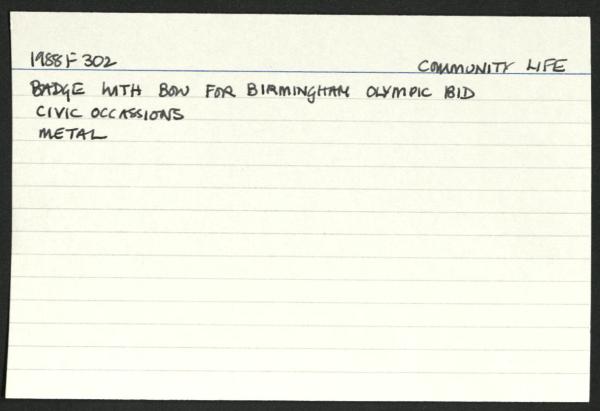 1988F302 COMMUNITY LIFE
BADGE WITH BOW FOR BIRMINGHAM OLYMPIC BID
CIVIC OCCASSIONS
METAL